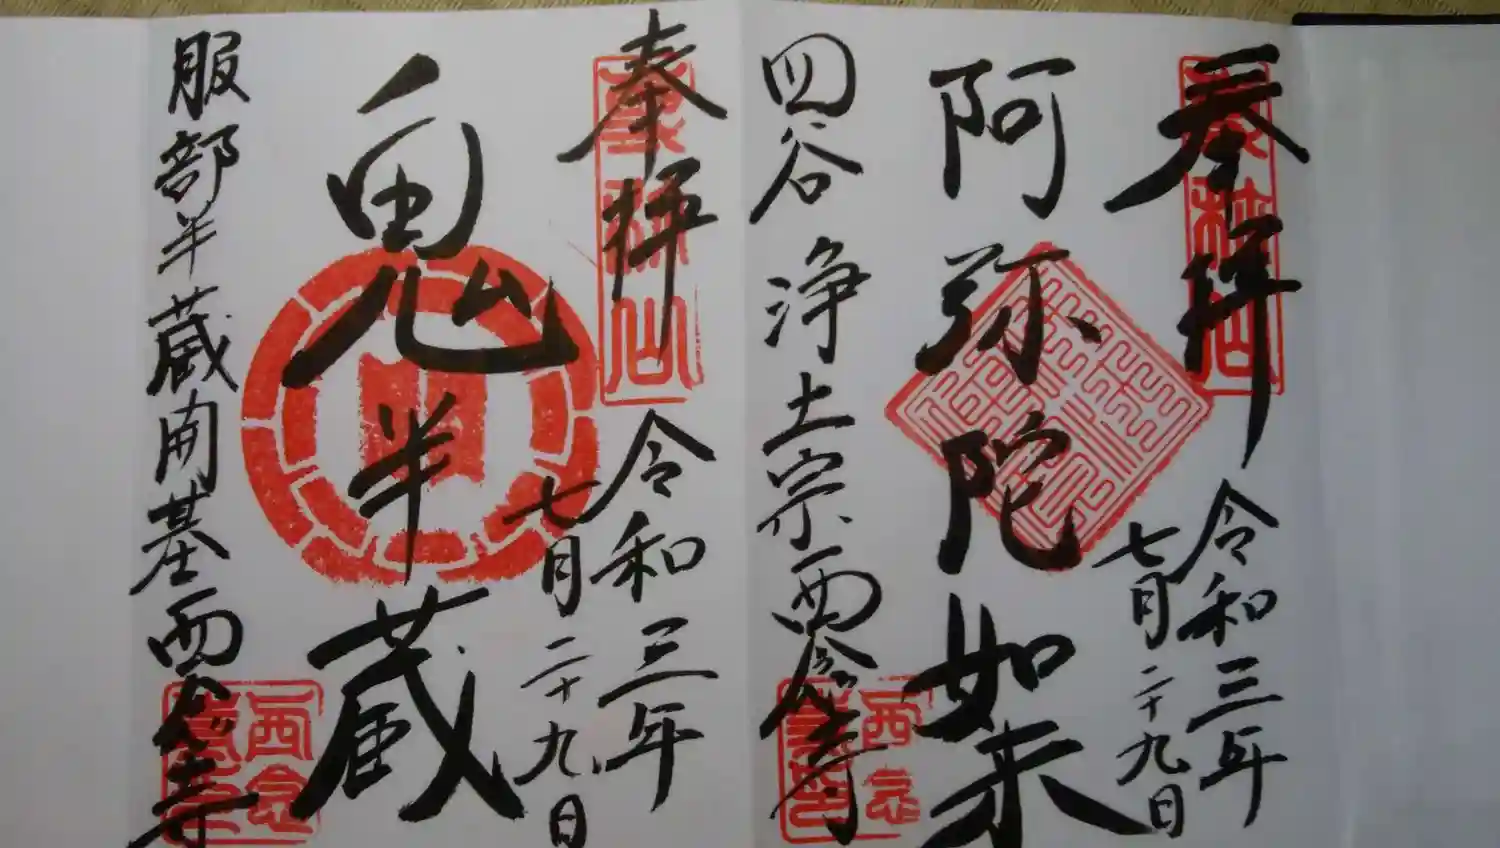 奉拝
令和三年
七月二十九日
阿弥陀如来
四谷浄土宗西念寺
西念
奉拝
令和三年
七月二十九日
鬼半蔵
服部半蔵開基西念寺
西念